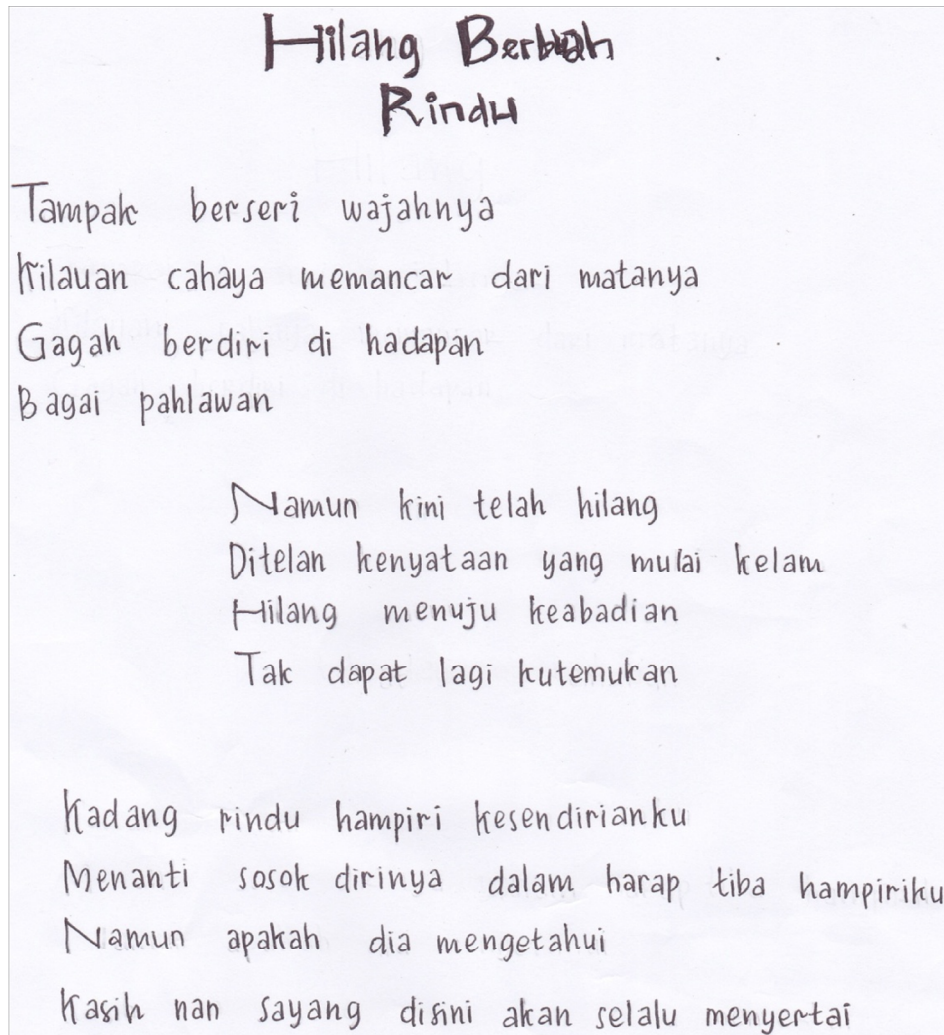 Hilang Berbuah
Rindu
Tampak berseri wajahnya
Kilauan cahaya memancar dari matanya
Gagah berdiri di hadapan
Bagai pahlawan
Namun kini telah hilang
Ditelan kenyataan yang mulai kelam
Hilang menuju keabadian
Tak dapat lagi kutemukan
Kadang rindu hampiri kesendirianku
Menanti sosok dirinya dalam harap tiba hampiriku
Namun apakah dia mengetahui
Kasih nan sayang disini akan selalu menyertai